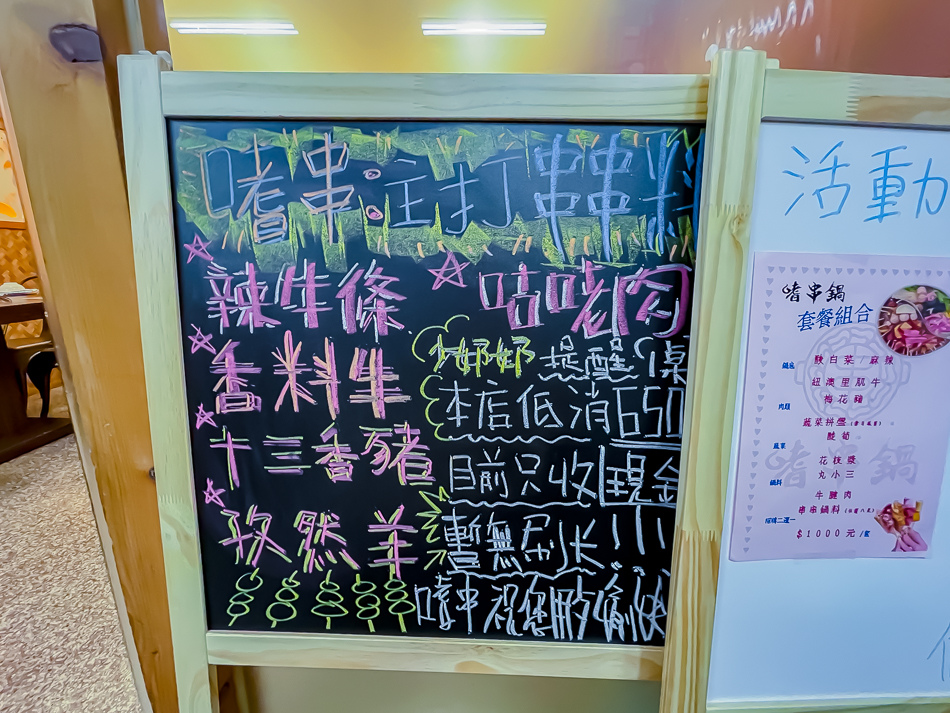 嗜串:主打串串
辣牛條
咕咾肉
香料牛
少奶奶提醒
本店低消650
十三香豬
目前只收現金
孜然羊
暫無刷卡!!!
嗜串祝您用餐愉快
活動
嗜串鍋
套餐組合
鍋底
酸白菜/麻辣
紐澳里肌牛
肉類
梅花豬
蔬菜拼盤
蔬菜
酸筍
花枝漿
鍋料
丸小三
牛腱肉
串串鍋料
招牌二選一
$1000元/套
嗜串鍋